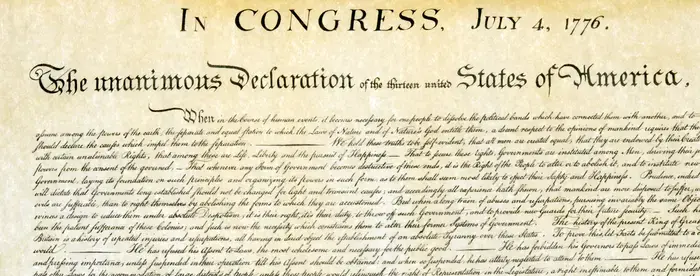 IN CONGRESS, JULY 4, 1776.
The unanimous Declaration of the thirteen united States of America,
When in the Course of human events, it becomes necessary for one people to dissolve the political bands which have connected them with another, and to
assume among the powers of the earth, the separate and equal station to which the Laws of Nature and of Nature's God entitle them, a decent respect to the opinions of mankind requires that they
should declare the causes which impel them to the separation. We hold these truths to be self-evident, that all men are created equal, that they are endowed by their
with certain unalienable Rights, that among these are Life, Liberty and the pursuit of Happiness. — That to secure these rights, Governments are instituted among Men, deriving their
powers from the consent of the governed, — That whenever any Form of Government becomes destructive of these ends, it is the Right of the People to alter or to abolish it, and to institute new
Government, laying its foundation on such principles and organizing its powers in such form, as to them shall seem most likely to effect their Safety and Happiness. Prudence, indeed
will dictate that Governments long established should not be changed for light and transient causes; and accordingly all experience hath shewn, that mankind are more disposed to suffer, while
evils are sufferable, than to right themselves by abolishing the forms to which they are accustomed. But when a long train of abuses and usurpations, pursuing invariably the same Object
evinces a design to reduce them under absolute Despotism, it is their right, it is their duty, to throw off such Government, and to provide new Guards for their future security. — Such has
been the patient sufferance of these Colonies; and such is now the necessity which constrains them to alter their former Systems of Government. The history of the present King of Great
Britain is a history of repeated injuries and usurpations, all having in direct object the establishment of an absolute Tyranny over these States. To prove this, let Facts be submitted to a
world. He has refused his Assent to Laws, the most wholesome and necessary for the public good. He has forbidden his Governors to pass Laws of
and pressing importance, unless suspended in their operation till his Assent should be obtained; and when so suspended, he has utterly neglected to attend to them. He has